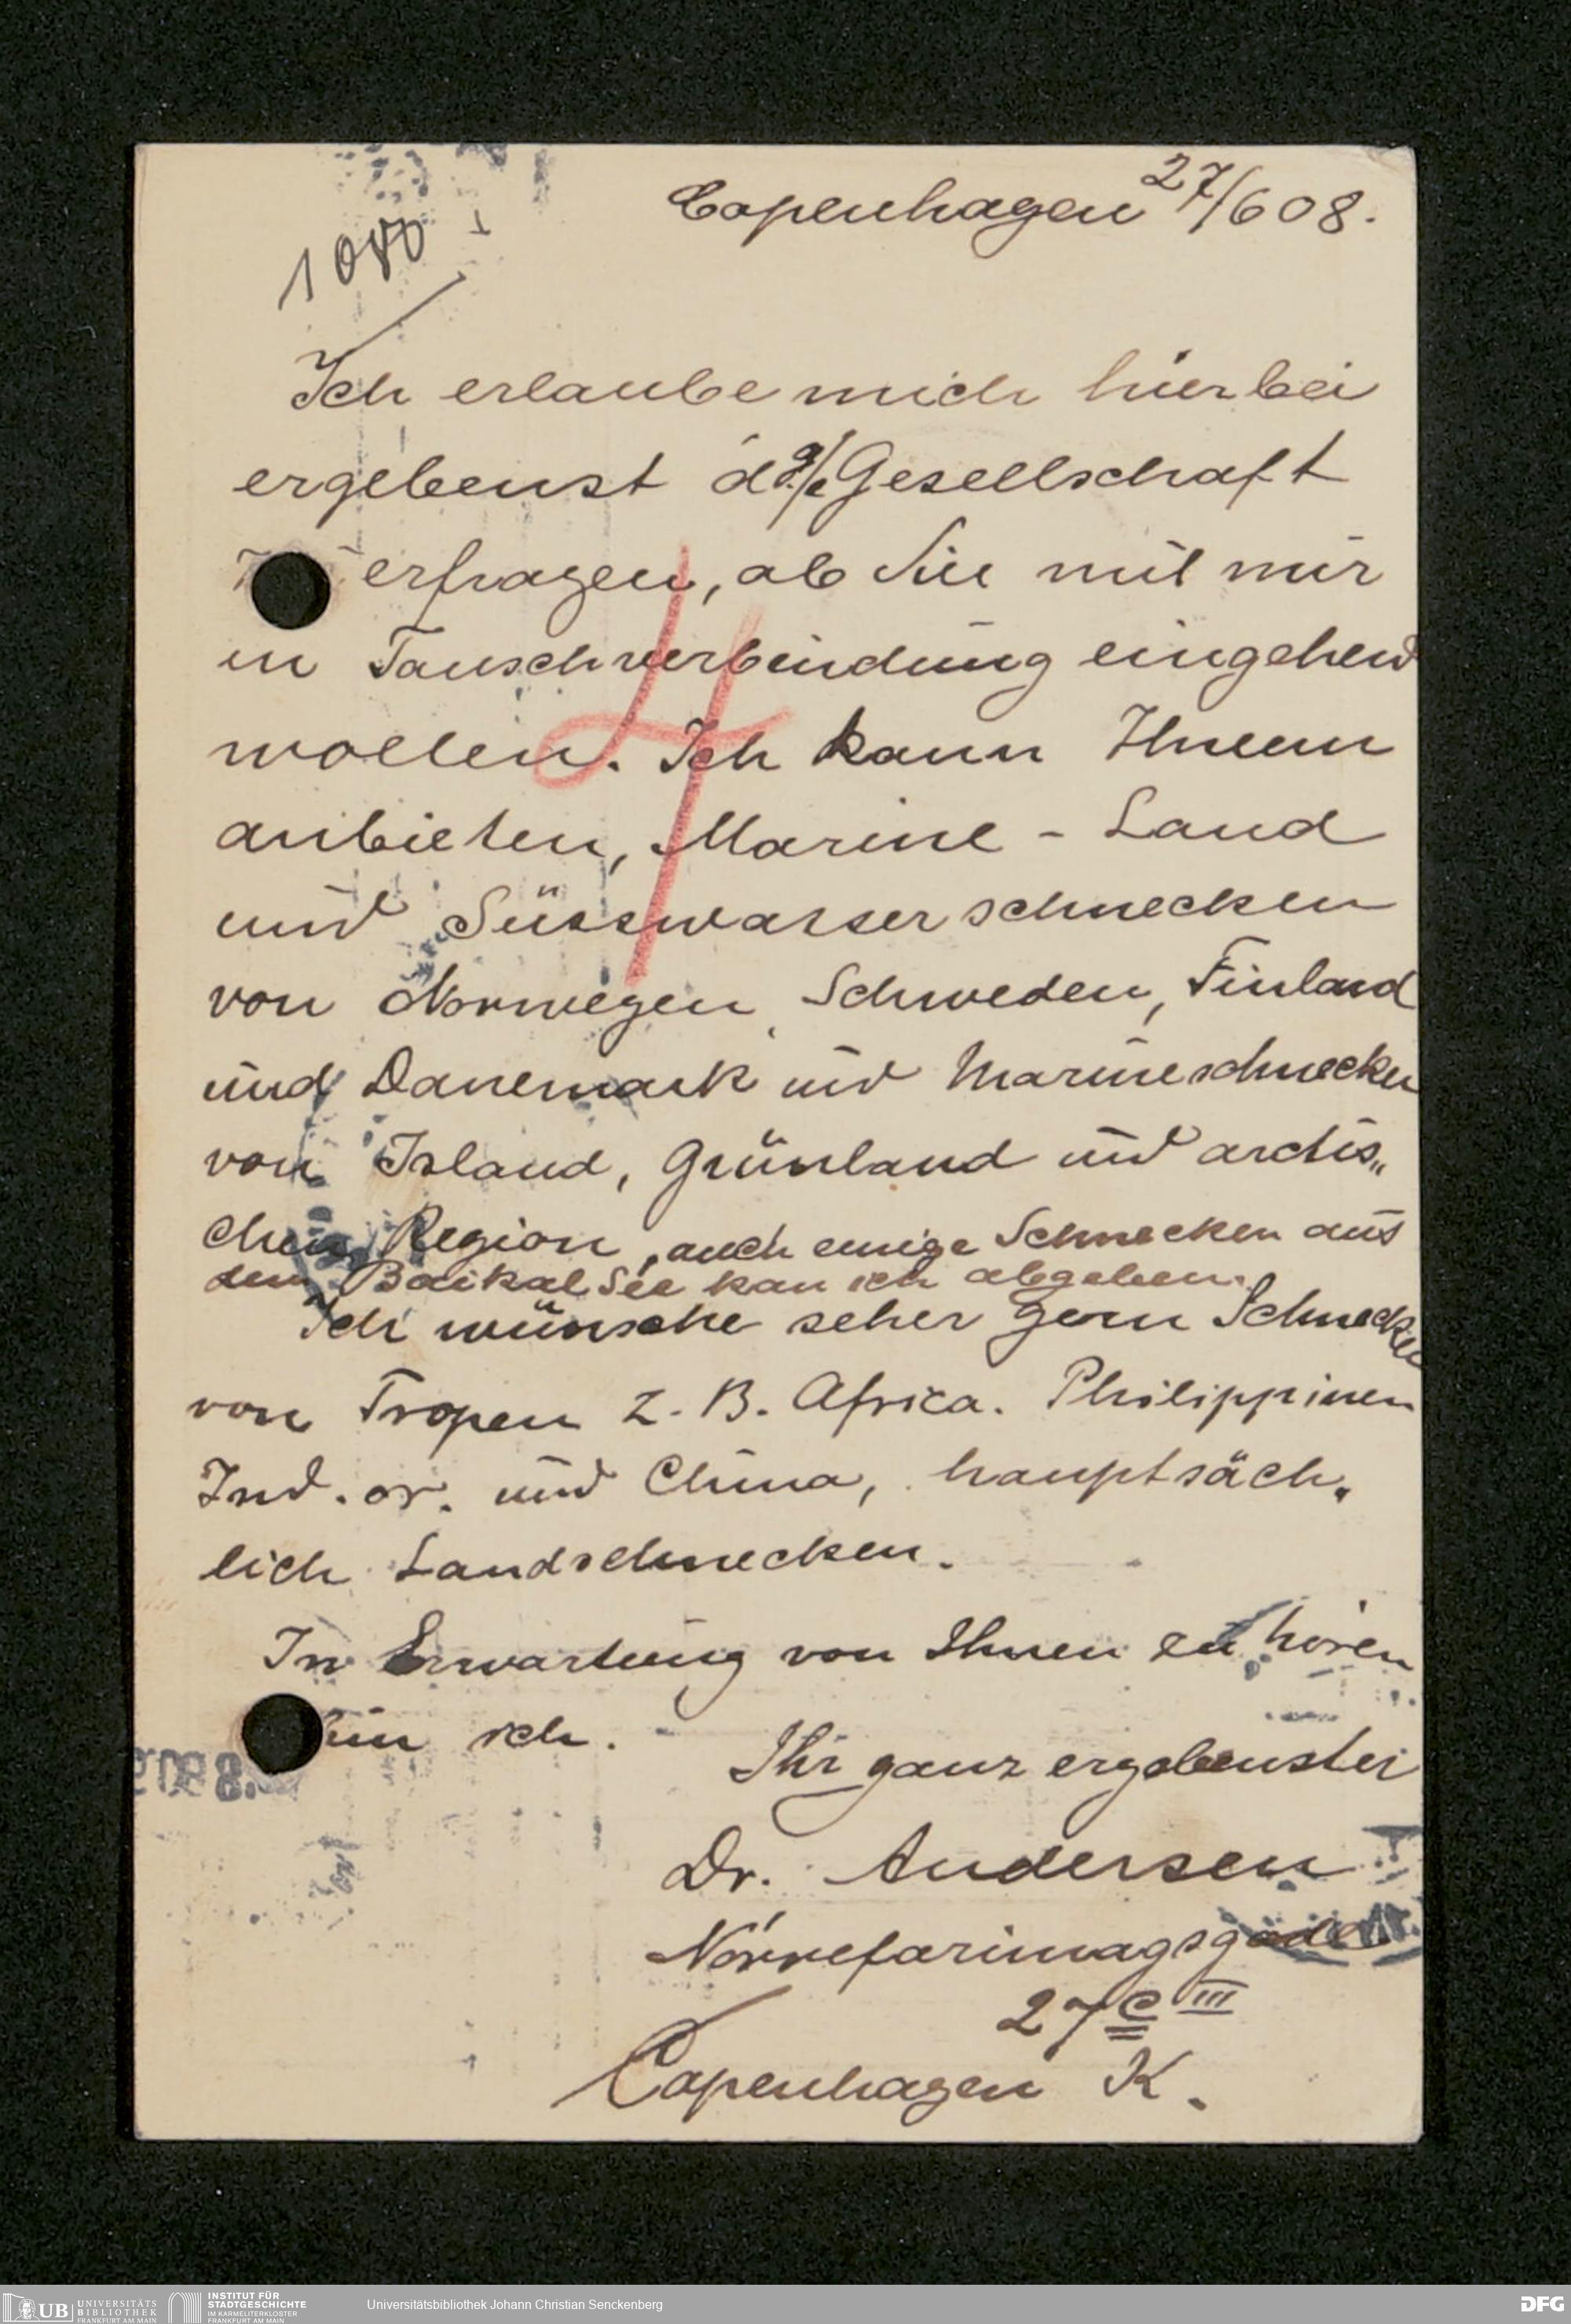 Copenhagen 27/6 08.
1080
Ich erlaube mich hierbei
ergebenst d Gesellschaft
erfragen, ob Sie mit mir
in Tauschverbindung eingehend
wollen. Ich kann Ihnenn
anbieten, Marine - Land
und Süsswasserschnecken
von Norwegen, Schweden, Finland
und Danemark und Marineschnecken
von Island, Grünland und arctis„
chen Region, auch einige Schnecken aus
dem Baikal See kan ich abgeben.
Ich wünsche seher gern Schnecken
von Tropen z. B. Africa. Philippinen
Ind. or. und China, hauptsäch„
lich Landschnecken.
In Erwartung von Ihnen zu hören
bin ich.
Ihr ganz ergebenster
Dr. Andersen
Nörrefarimagsgade
27 C III
Copenhagen K.
UB UNIVERSITÄTS
BIBLIOTHEK
FRANKFURT AM MAIN
INSTITUT FÜR
STADTGESCHICHTE
IM KARMELITERKLOSTER
FRANKFURT AM MAIN
Universitätsbibliothek Johann Christian Senckenberg
DFG